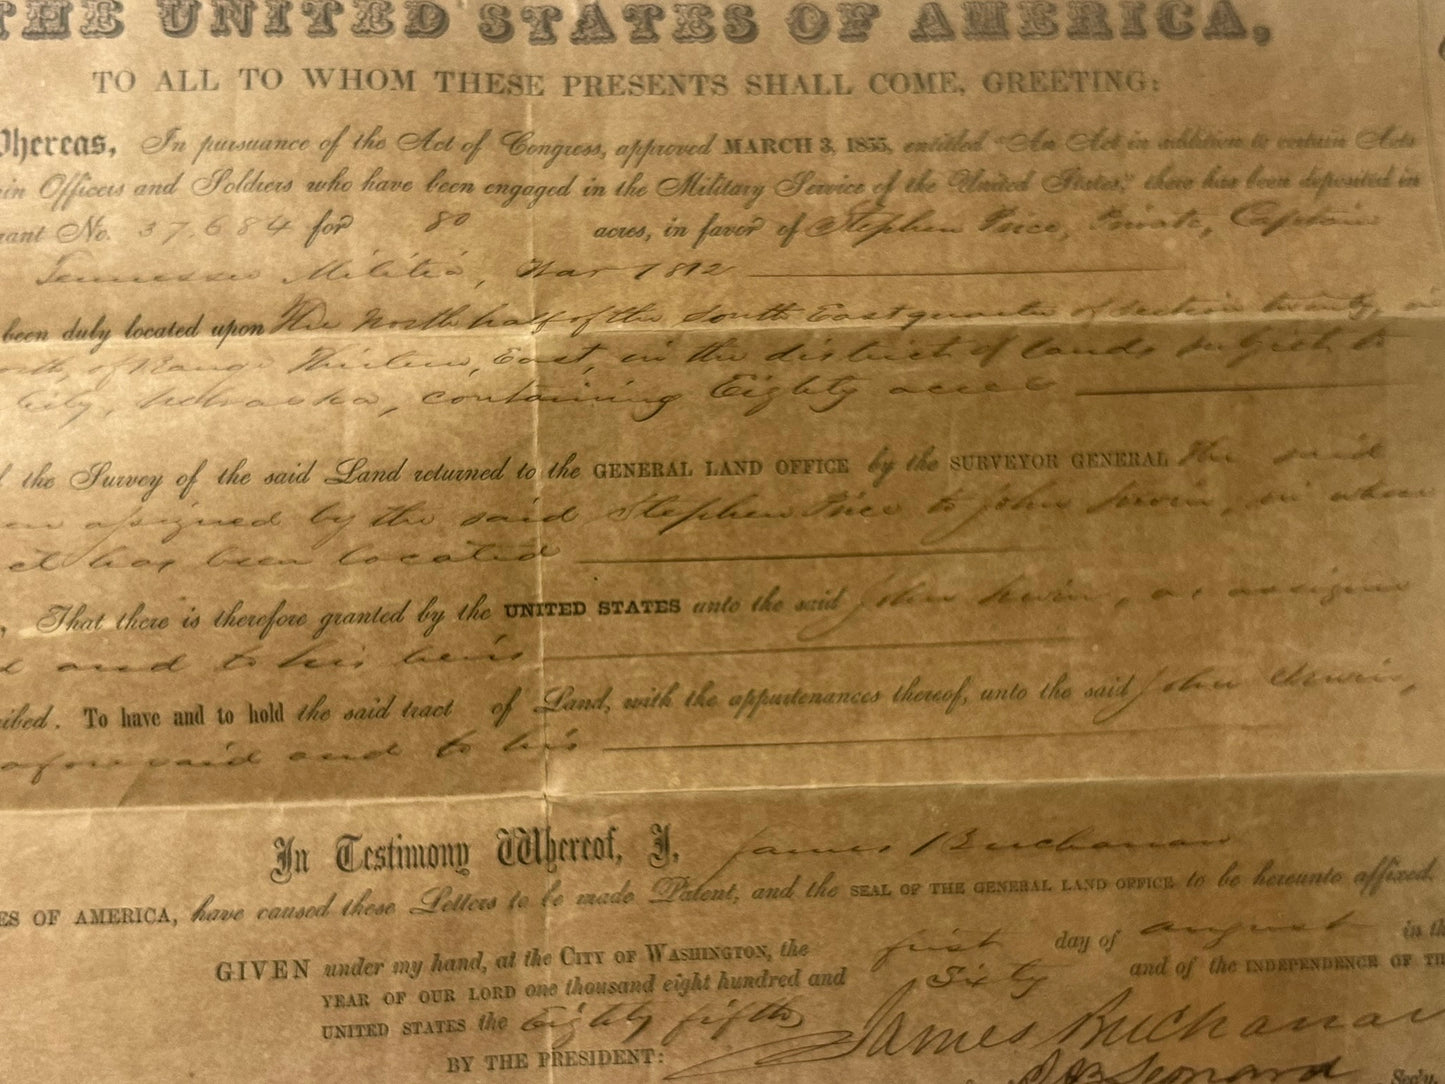 THE UNITED STATES OF AMERICA,
TO ALL TO WHOM THESE PRESENTS SHALL COME, GREETING:
Whereas, In pursuance of the Act of Congress, approved MARCH 3, 1855, entitled "An Act in addition to certain Acts
in Officers and Soldiers who have been engaged in the Military Service of the United States," there has been deposited in
rant No. 37.684 for 80 acres, in favor of Stephen Price, Private, Captain
Tennessee Militia, War 1812
been duly located upon The North half of the South East quarter of Section twenty, in
of Range Thirteen, East, in the district of lands subject to
City, Nebraska, containing Eighty acres
the Survey of the said Land returned to the GENERAL LAND OFFICE by the SURVEYOR GENERAL The said
assigned by the said Stephen Price to John Irwin, in whose
it has been located
, That there is therefore granted by the UNITED STATES unto the said John Irwin, as assignee
and to his heirs
ibed. To have and to hold the said tract of Land, with the appurtenances thereof, unto the said John Irwin,
aforesaid and to his
In Testimony Whereof, I, James Buchanan
ES OF AMERICA, have caused these Letters to be made Patent, and the SEAL OF THE GENERAL LAND OFFICE to be hereunto affixed.
GIVEN under my hand, at the CITY OF WASHINGTON, the first day of august in th
YEAR OF OUR LORD one thousand eight hundred and Sixty and of the INDEPENDENCE OF TH
UNITED STATES the Eighty fifth
BY THE PRESIDENT: James Buchanan
J. B. Leonard Sec'y